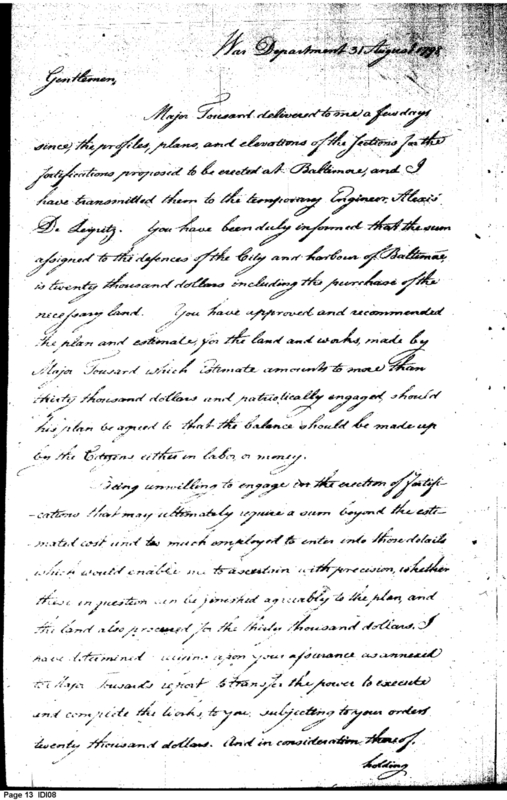 War Department 31 August 1798
Gentlemen,
Major Tousard delivered to me a few days
since, the profiles, plans, and elevations of the Sections for the
fortifications proposed to be erected at Baltimore, and I
have transmitted them to the temporary Engineer, Alexis
De Leipritz. You have been duly informed that the sum
assigned to the defences of the City and harbour of Baltimore,
is twenty thousand dollars including the purchase of the
necessary land. You have approved and recommended
the plan and estimate, for the land and works, made by
Major Tousard which Estimate amounts to more than
thirty thousand dollars and patriotically engaged, should
his plan be agreed to that the balance should be made up
by the Citizens either in labor or money.
Being unwilling to engage in the erection of Fortifi-
-cations that may ultimately require a sum beyond the esti-
mated cost and too much employed to enter into those details
which would enable me to ascertain with precision, whether
these in question can be finished agreeably to the plan, and
the land also procured for the thirty thousand dollars, I
have determined upon your assurance as annexed
to Major Tousard's report to transfer the power to execute
and complete the works, to you, subjecting to your orders
twenty thousand dollars. And in consideration thereof.
holding
Page 13 IDI08